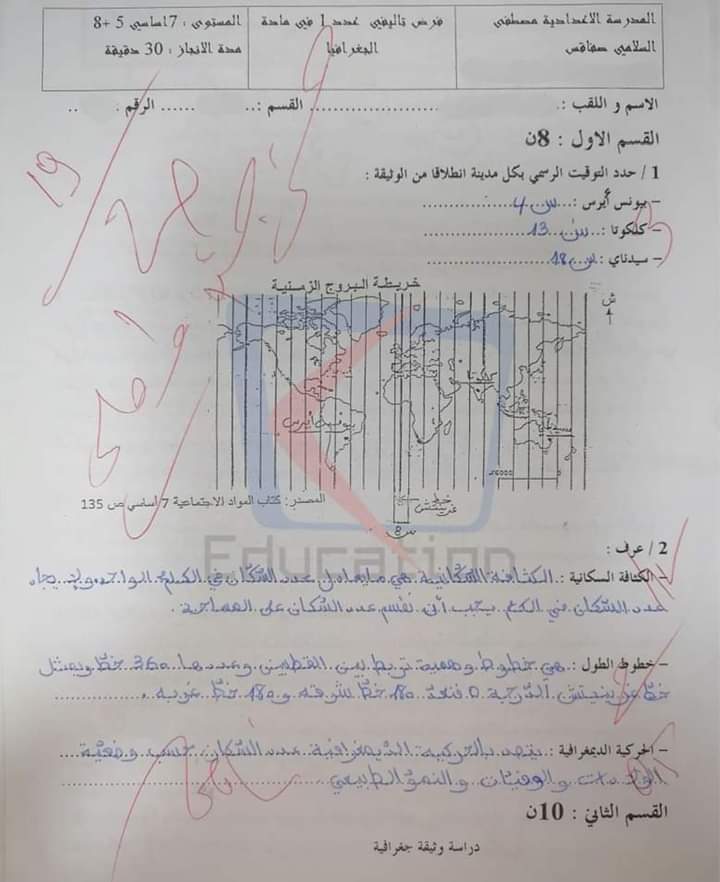 المدرسة الاعدادية مصطفى السلامي صفاقس
فرض تاليفي عدد 1 في مادة الجغرافيا
المستوى : 7 اساسي 5 +8
مدة الانجاز : 30 دقيقة
الاسم و اللقب : ........ القسم :.. ...... الرقم . ..
19
القسم الاول : 8ن
1 / حدد التوقيت الرسمي بكل مدينة انطلاقا من الوثيقة :
– بيونس أيرس :...س 4...
– كلكوتا :...س 13...
– سيدناي : س 18...
خريطة البروج الزمنية
ش
بوينس أيرس
خط غرينتش
س8
المصدر: كتاب المواد الاجتماعية 7 أساسي ص 135
Education
2 / عرف :
– الكثافة السكانية : الكثافة السكّانية هي ما يعادل عدد السّكّان في الكلم² الواحد ولإيجاد
عدد السكان في الكلم² يجب أن نقسم عدد السكان على المساحة.
– خطوط الطول : هي خطوط وهمية تربط بين القطبين وعددها 360 خطّ ويمثل
خطّ غرينيتش الدّرجة 0 فنعدّ 180 خطّ شرقه و180 خطّ غربه.
– الحركية الديمغرافية : يقصد بالحركية الديمغرافية عدد السّكان حسب وضعيّة
الولادات والوفيّات والنموّ الطبيعي
القسم الثاني : 10ن
دراسة وثيقة جغرافية